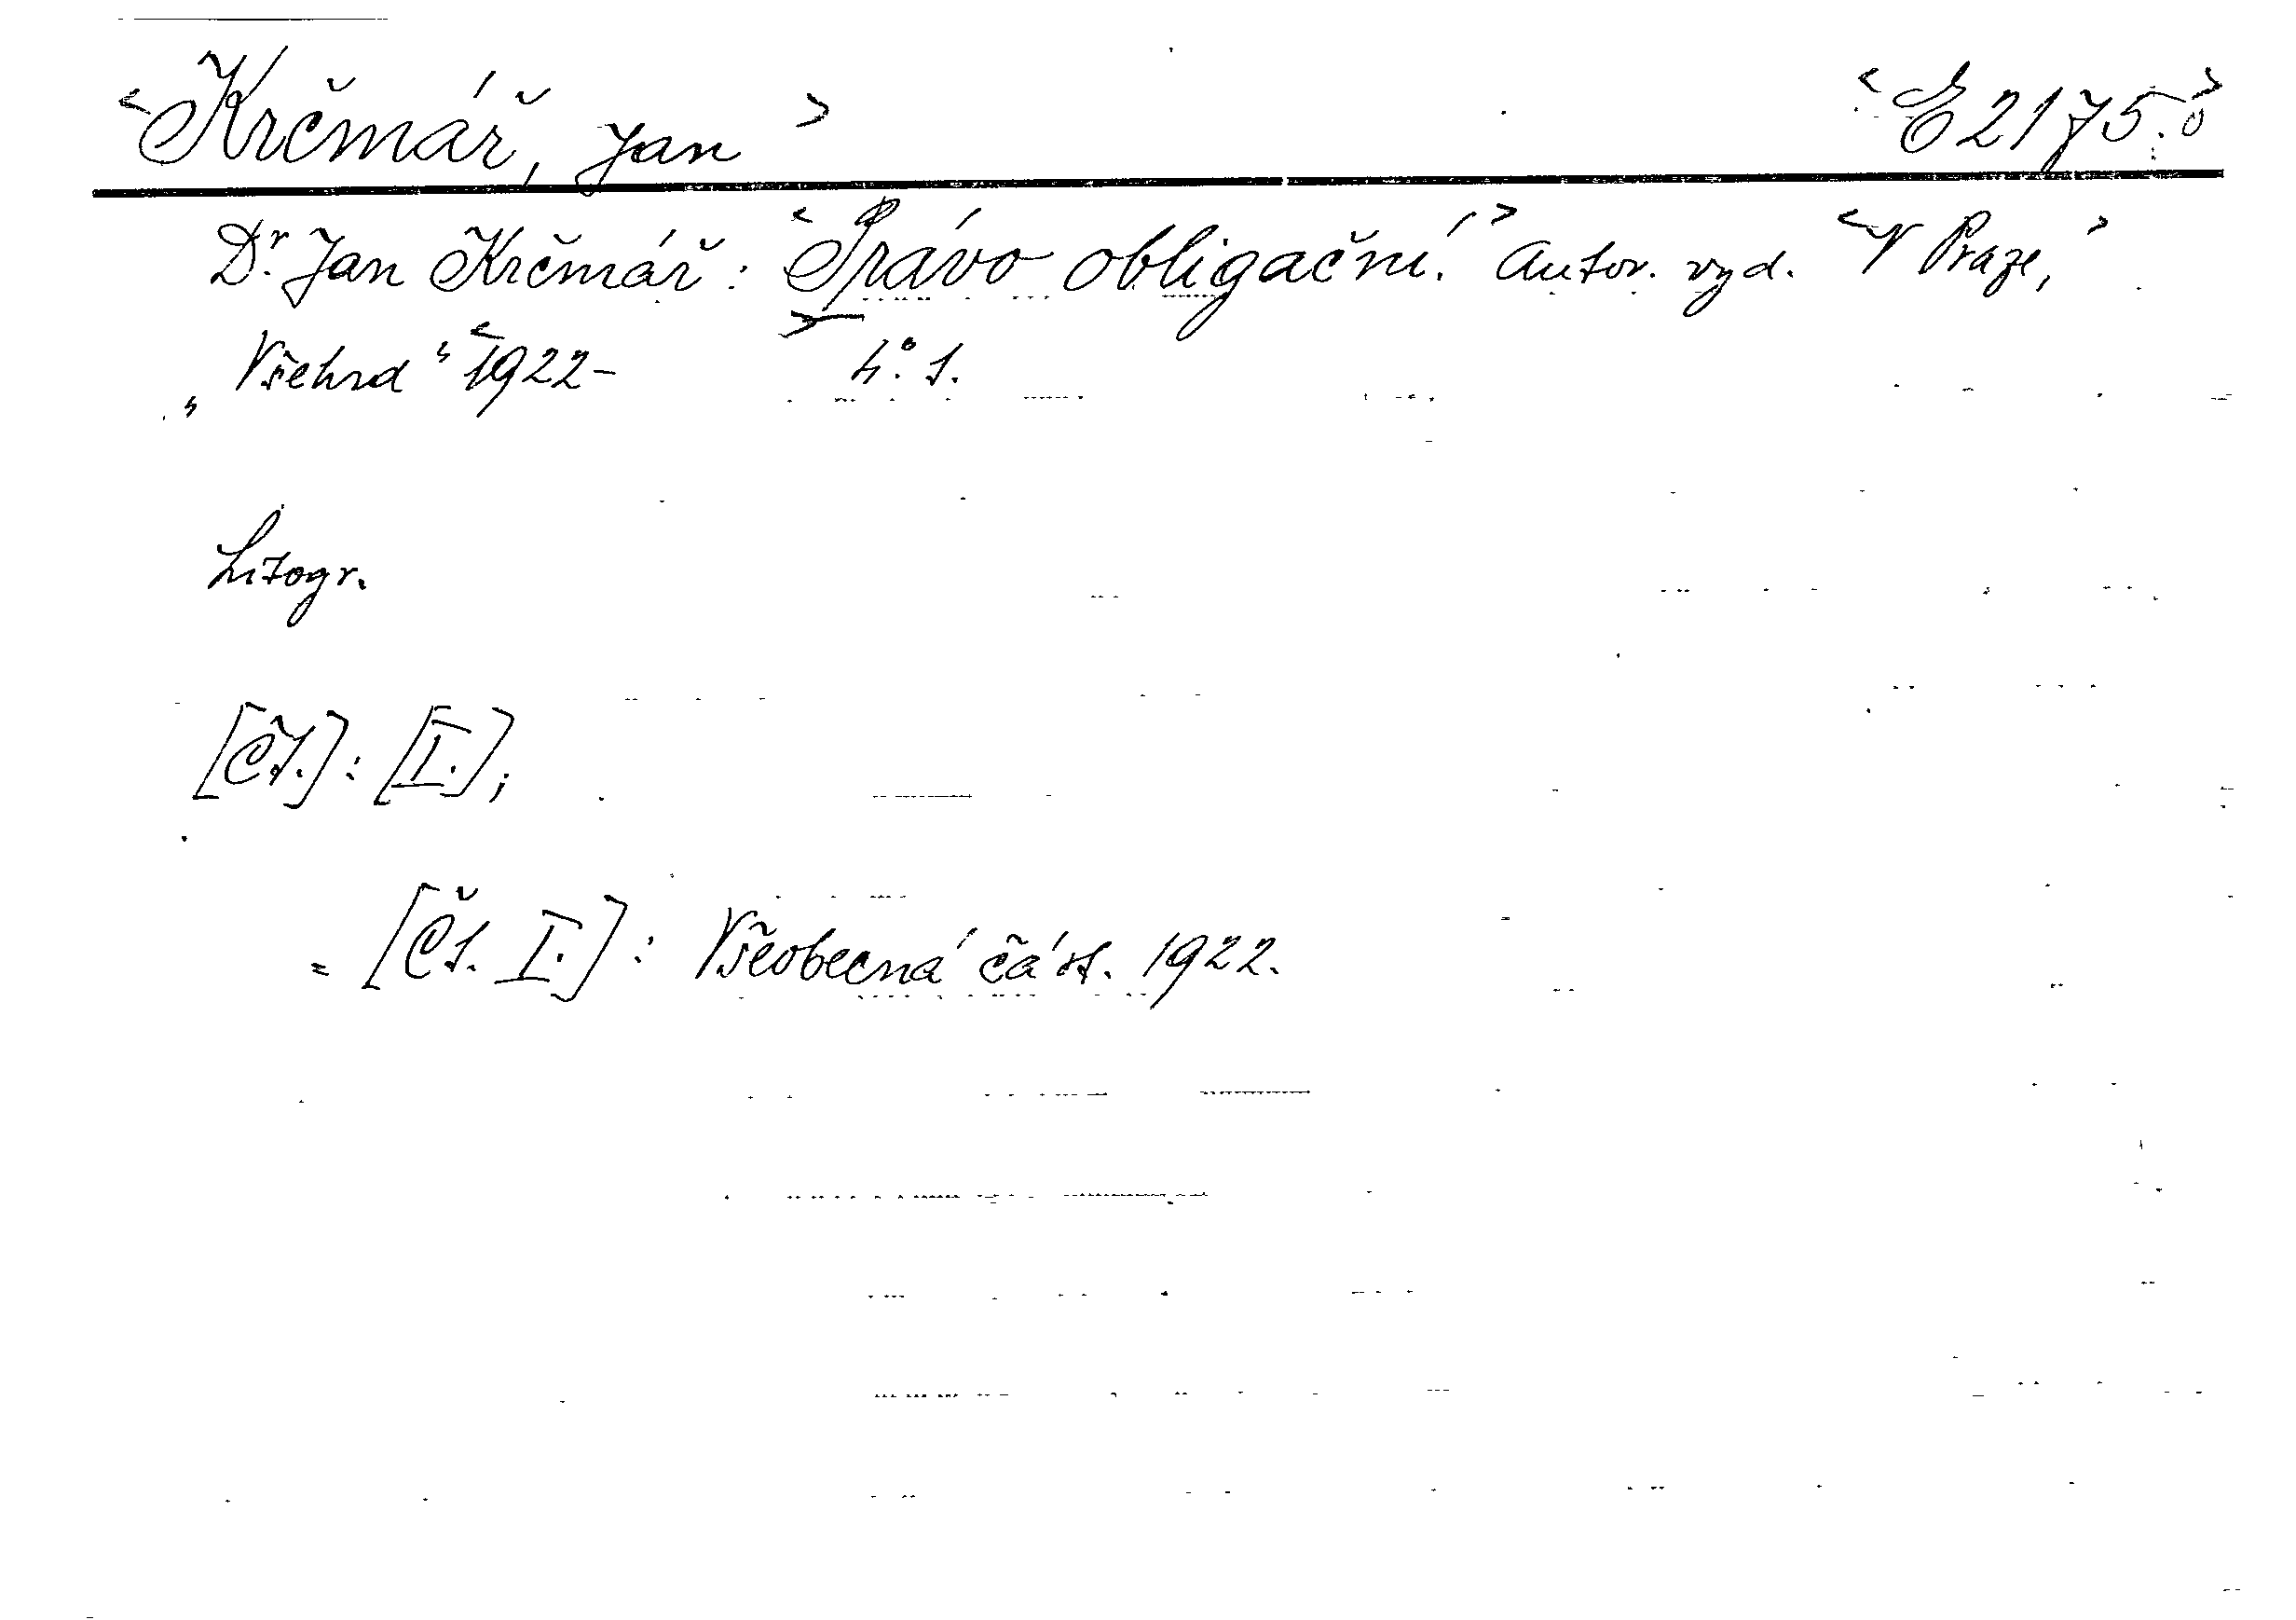 <Krčmář, Jan> <E 2175.>
Dr. Jan Krčmář: <Právo obligační.> Autor. vyd. <V Praze,>
„Všehrd“ <1922- > 4°. 1.
Litogr.
[Čs.]: [I.];
= [Čs. I.]: Všeobecná část. 1922.